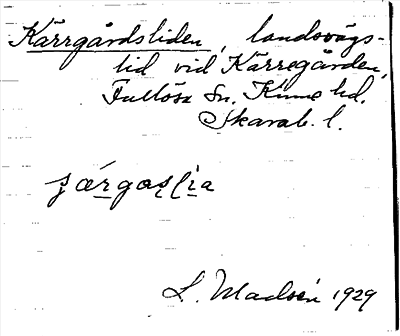 Kärrgårdsliden, landsvägs-
lid vid Kärregården,
Fullösa Sn. Kinne hd.
Skarab. l.
L. Madsén 1929